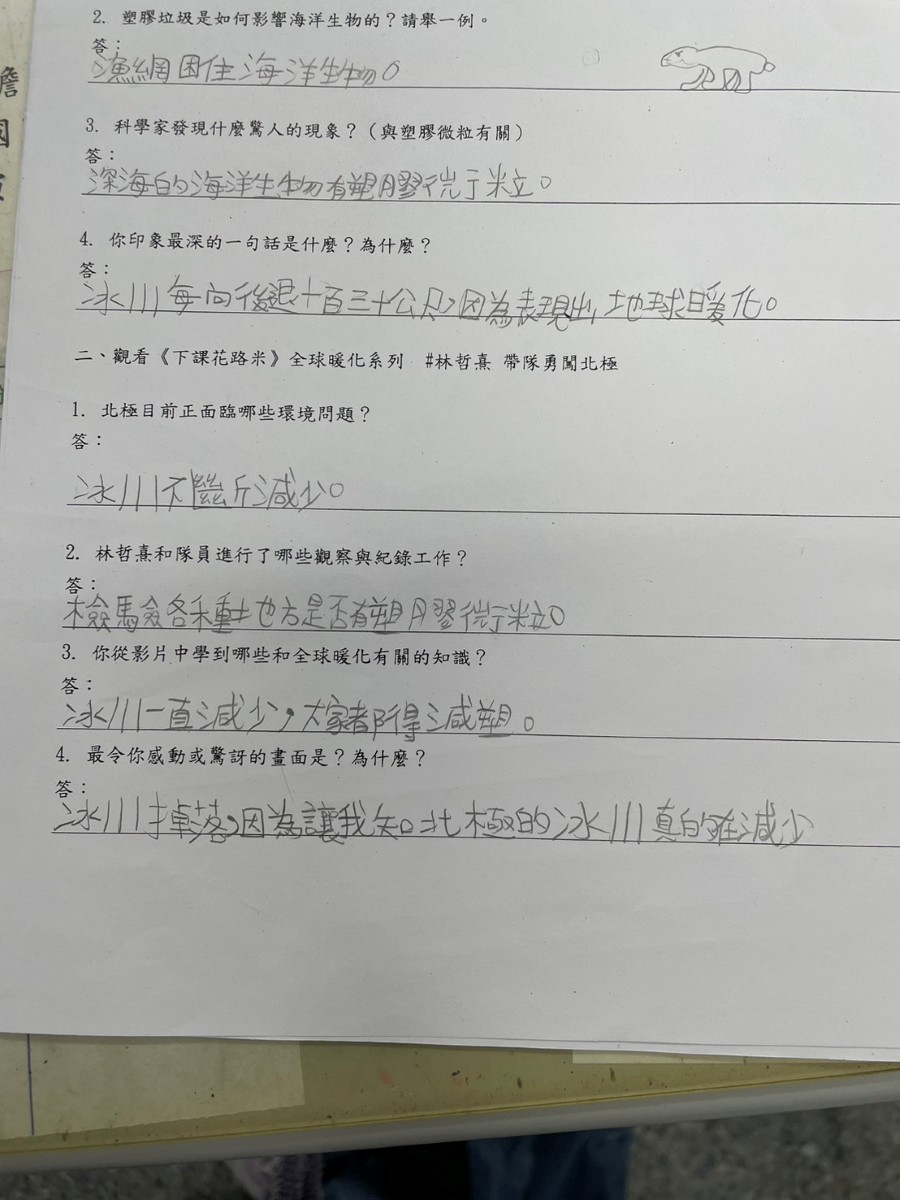 2. 塑膠垃圾是如何影響海洋生物的？請舉一例。
答：
漁網困住海洋生物。
3. 科學家發現什麼驚人的現象？（與塑膠微粒有關）
答：
深海的海洋生物有塑膠微粒。
4. 你印象最深的一句話是什麼？為什麼？
答：
冰川每向後退十百三十公尺,因為表現出,地球暖化。
二、觀看《下課花路米》全球暖化系列 #林哲熹 帶隊勇闖北極
1. 北極目前正面臨哪些環境問題？
答：
冰川不斷減少。
2. 林哲熹和隊員進行了哪些觀察與紀錄工作？
答：
檢驗各種地方是否有塑膠微粒。
3. 你從影片中學到哪些和全球暖化有關的知識？
答：
冰川一直減少,大家都得減塑。
4. 最令你感動或驚訝的畫面是？為什麼？
答：
冰川掉落,因為讓我知北極的冰川真的在減少